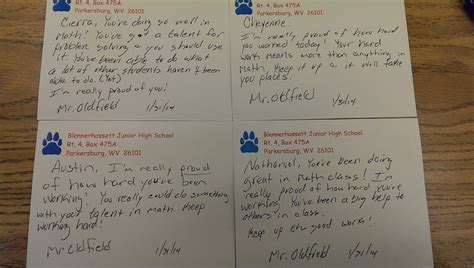 Rt. 4, Box 475A
Parkersburg, WV 26101
Cierra, You're doing so well in
Math! You've got a talent for
problem solving & you should use
it. You've been able to do what
a lot of other students haven't been
able to do. (Yet)
I'm really proud of you!
Mr. Oldfield 1/31/14
Rt. 4, Box 475A
Parkersburg, WV 26101
Cheyenne,
I'm really proud of how hard
you worked today! Your hard
work means more than anything in
math. Keep it up & it will take
you places.
Mr. Oldfield 1/31/14
Blennerhassett Junior High School
Rt. 4, Box 475A
Parkersburg, WV 26101
Austin, I'm really proud
of how hard you've been
working! You really could do something
with your talent in math. Keep
working hard!
Mr. Oldfield 1/31/14
Blennerhassett Junior High School
Rt. 4, Box 475A
Parkersburg, WV 26101
Nathaniel, You've been doing
great in math class! I'm
really proud of how hard you're
working. You've been a big help to
others in class.
Keep up the good work!
Mr. Oldfield 1/31/14